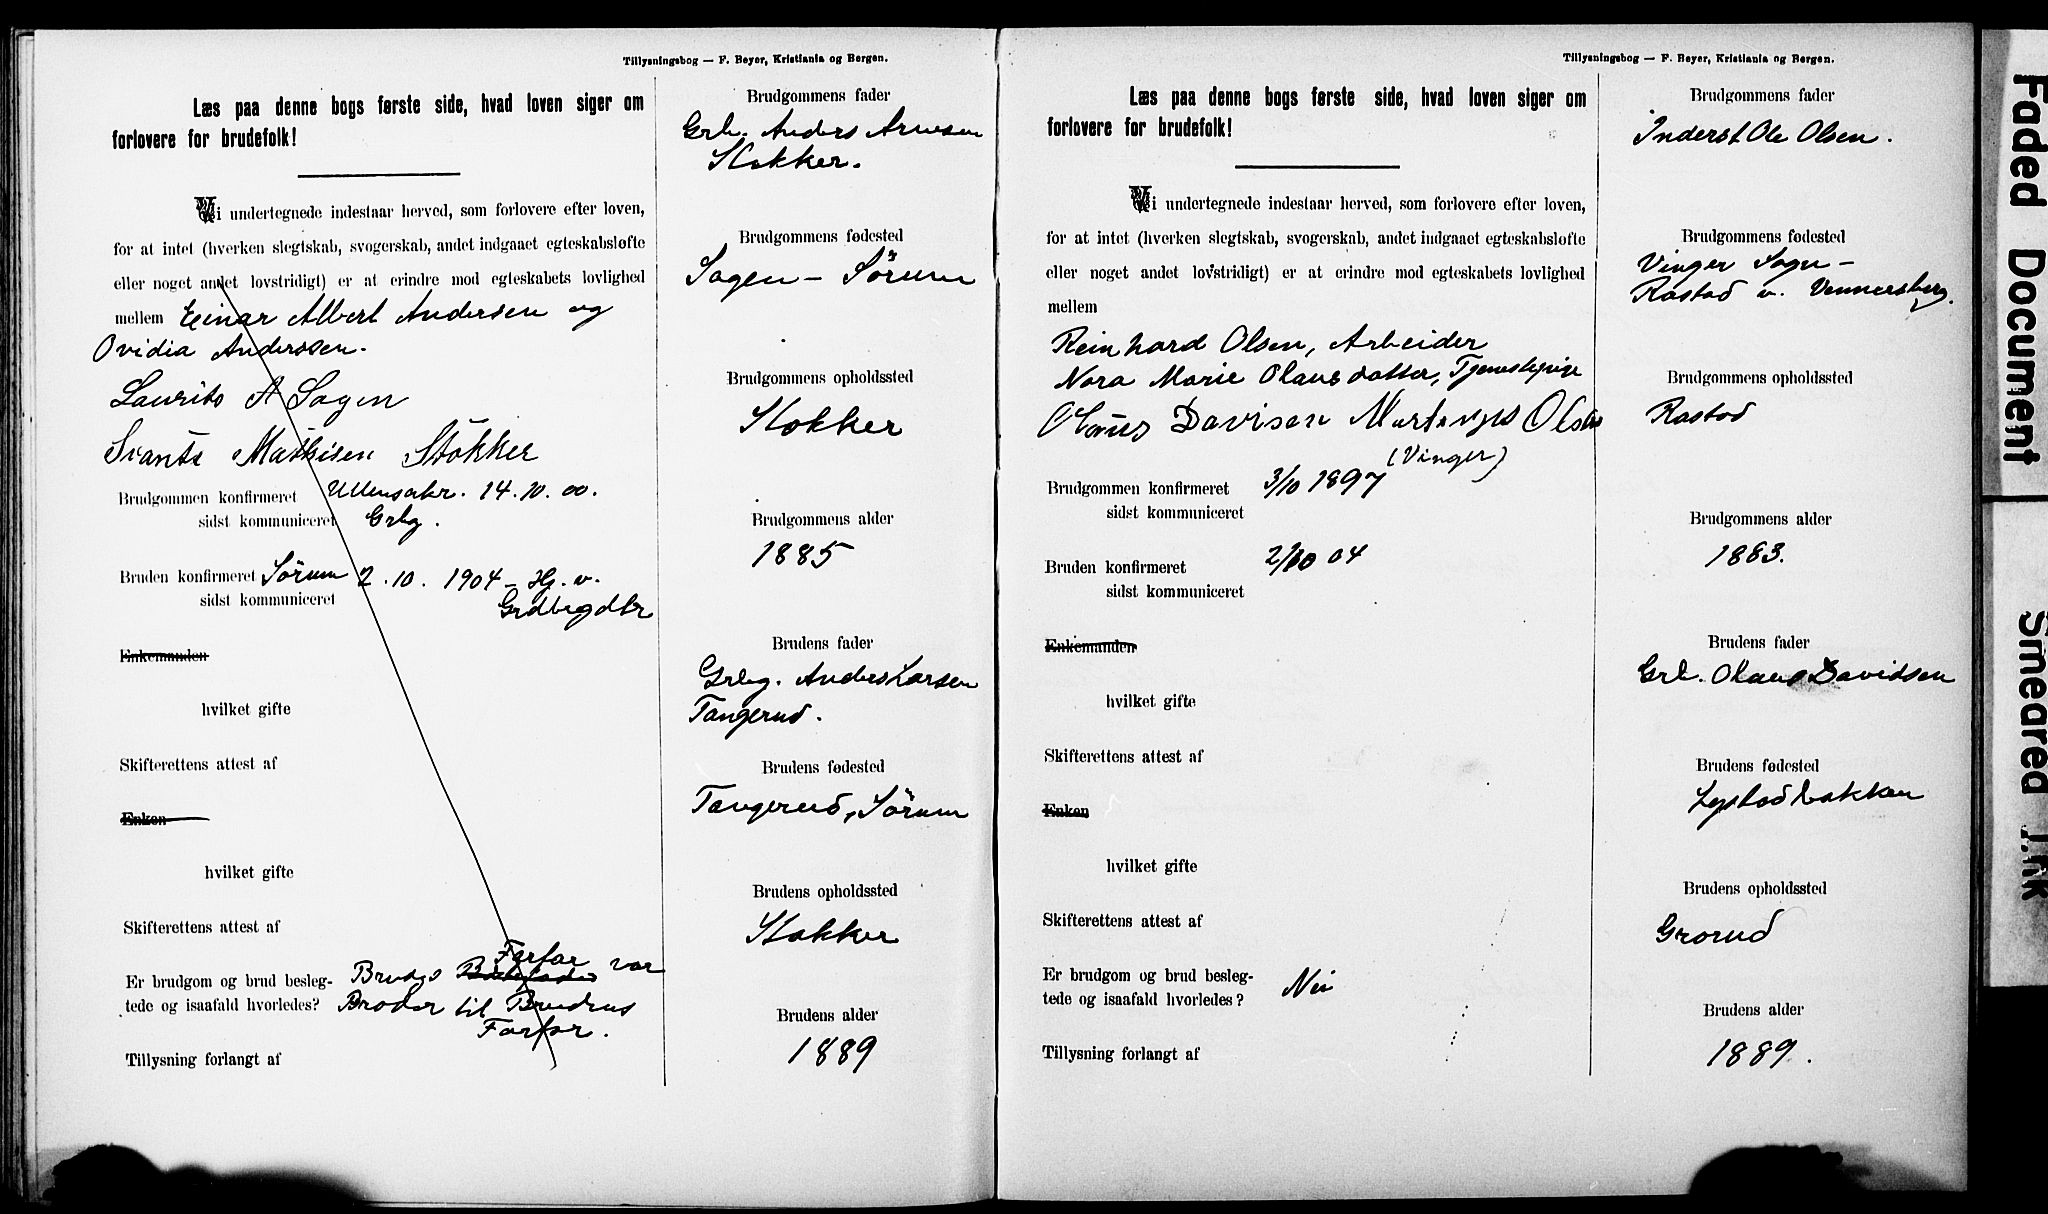 Tillysningsbog — F. Beyer, Kristiania og Bergen.
Læs paa denne bogs første side, hvad loven siger om
forlovere for brudefolk!
Vi undertegnede indestaar herved, som forlovere efter loven,
for at intet (hverken slegtskab, svogerskab, andet indgaaet egteskabsløfte
eller noget andet lovstridigt) er at erindre mod egteskabets lovlighed
mellem Einar Albert Andersen og
Ovidia Anderssen.
Laurits A Sagen
Svante Mathisen Stokker
Brudgommen konfirmeret Ullensaker. 14.10.00.
sidst kommuniceret Grbg.
Bruden konfirmeret Sørum 2.10.1904 – Hj. v.
sidst kommuniceret Grdbrgdtr
Enkemanden
hvilket gifte
Skifterettens attest af
Enken
hvilket gifte
Skifterettens attest af
Farfar
Er brudgom og brud besleg- Brudgs var
tede og isaafald hvorledes? Broder til Brudens
Farfar.
Tillysning forlangt af
Brudgommens fader
Grb. Anders Arnesen
Stokker.
Brudgommens fødested
Sagen – Sörum
Brudgommens opholdssted
Stokker
Brudgommens alder
1885
Brudens fader
Grbg. Anders Larsen
Tangerud.
Brudens fødested
Tangerud, Sörum
Brudens opholdssted
Stokker
Brudens alder
1889
Tillysningsbog — F. Beyer, Kristiania og Bergen.
Læs paa denne bogs første side, hvad loven siger om
forlovere for brudefolk!
Vi undertegnede indestaar herved, som forlovere efter loven,
for at intet (hverken slegtskab, svogerskab, andet indgaaet egteskabsløfte
eller noget andet lovstridigt) er at erindre mod egteskabets lovlighed
mellem
Reinhard Olsen, Arbeider
Nora Marie Olausdatter, Tjenestepige
Olaus Davisen Martinius Olsen
(Vinger)
Brudgommen konfirmeret 3/10 1897
sidst kommuniceret
Bruden konfirmeret 2/10 04
sidst kommuniceret
Enkemanden
hvilket gifte
Skifterettens attest af
Enken
hvilket gifte
Skifterettens attest af
Er brudgom og brud besleg-
tede og isaafald hvorledes? Nei
Tillysning forlangt af
Brudgommens fader
Inderst Ole Olsen.
Brudgommens fødested
Vinger Sogn –
Rastad v. Vennersberg.
Brudgommens opholdssted
Rastad
Brudgommens alder
1883.
Brudens fader
Grb. Olaus Davidsen
Brudens fødested
Lystadbakken
Brudens opholdssted
Grorud
Brudens alder
1889.
Faded Document
Smeared Ink